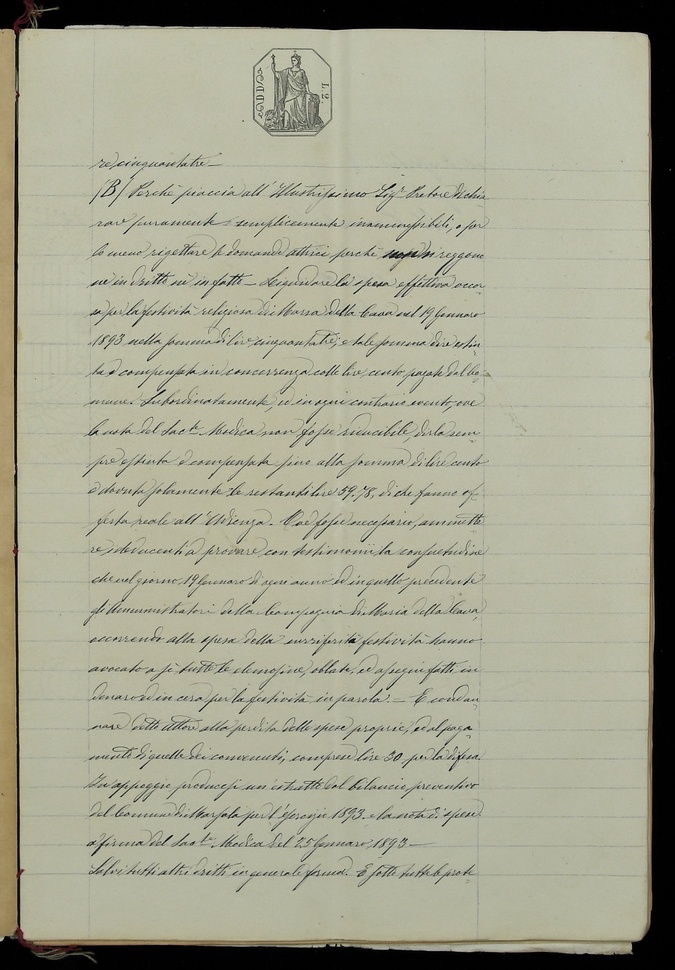 L. 2.
re, cinquantatre —
(B) Perché piaccia all'Illustrissimo Sigr. Pretore dichia
rare puramente e semplicemente inammessibili, o per
lo meno rigettare le domande attrici perché non si reggono
né in dritto né in fatto — Liquidare la spesa effettiva occor
sa per la festività religiosa di Maria della Cava nel 19 Gennaro
1893 nella somma di lire cinquantatre, e tale somma dire estin
ta e compensata in concorrenza colle lire cento pagate dal Co
mune. Subordinatamente, ed in ogni contrario evento, ove
la nota del Sacte. Modica non fosse riducibile, dirla sem
pre estinta e compensata sino alla somma di lire cento
e dovuta solamente le restanti lire 59,78, di che fanno of
ferta reale all'Udienza. Ove fosse necessario, ammette
re i deducenti a provare con testimonii la consuetudine
che nel giorno 19 Gennaro di ogni anno ed in quello precedente
gli Amministratori della Compagnia di Maria della Cava,
occorrendo alla spesa della surriferita festività hanno
avocato a sé tutte le elemosine, oblate, ed assegni fatti in
denaro ed in cera per la festività in parola. — E condan
nare detto attore alla perdita delle spese proprie, ed al paga
mento di quelle dei convenuti, comprese lire 30 per la difesa.
In appoggio producesi un'estratto dal bilancio preventivo
del Comune di Marsala per l'Esercizio 1893 e la nota di spese
a firma del Sacte. Modica del 25 Gennaro 1893 —
Salvi tutti altri dritti in generale forma. E sotto tutte le prote